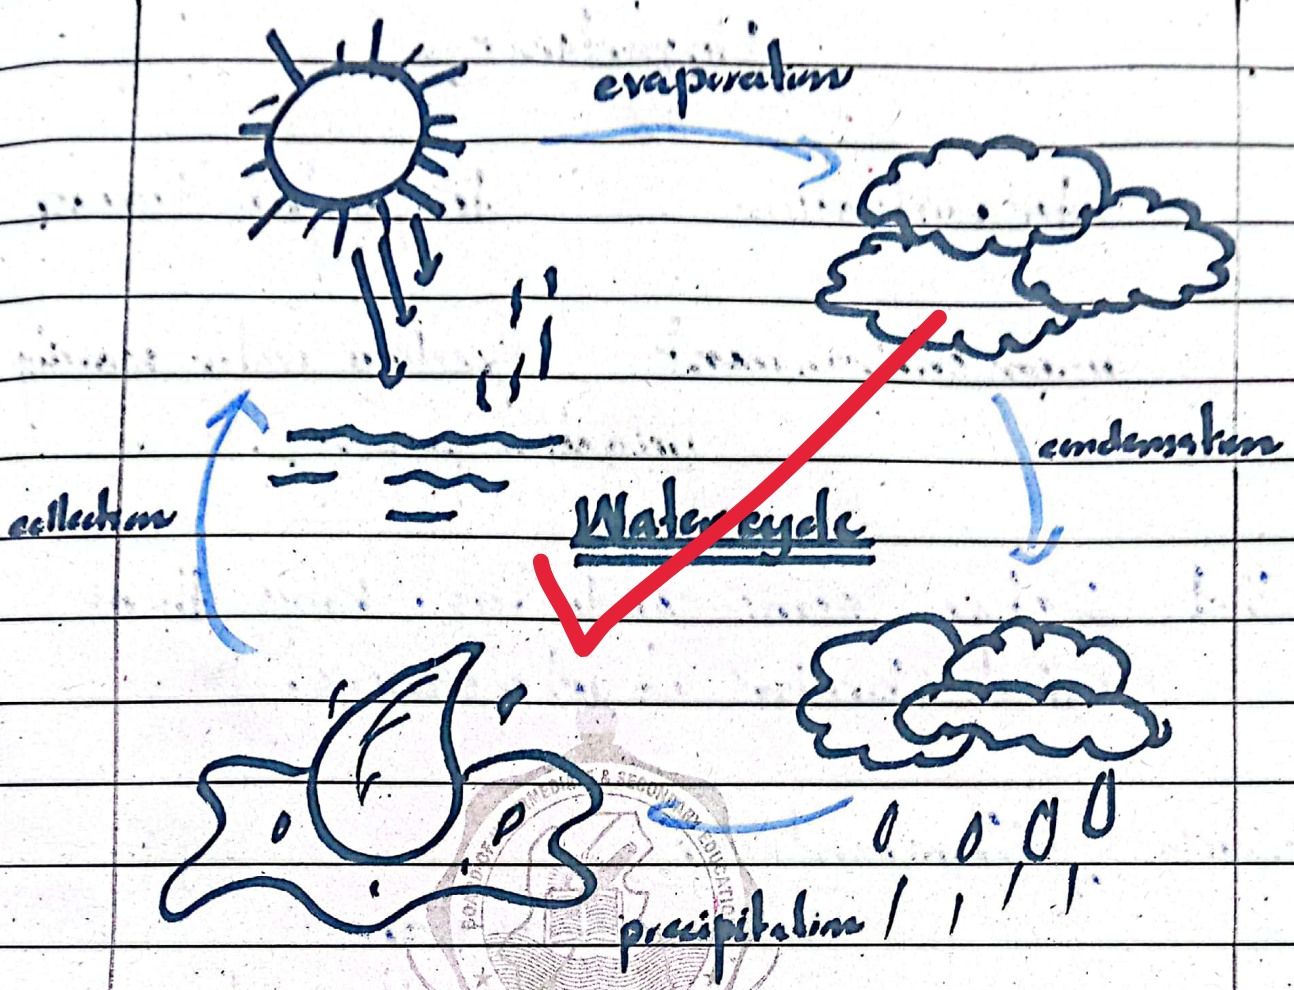 evaporation
condensation
collection
Water cycle
precipitation
BOARD OF INTERMEDIATE & SECONDARY EDUCATION